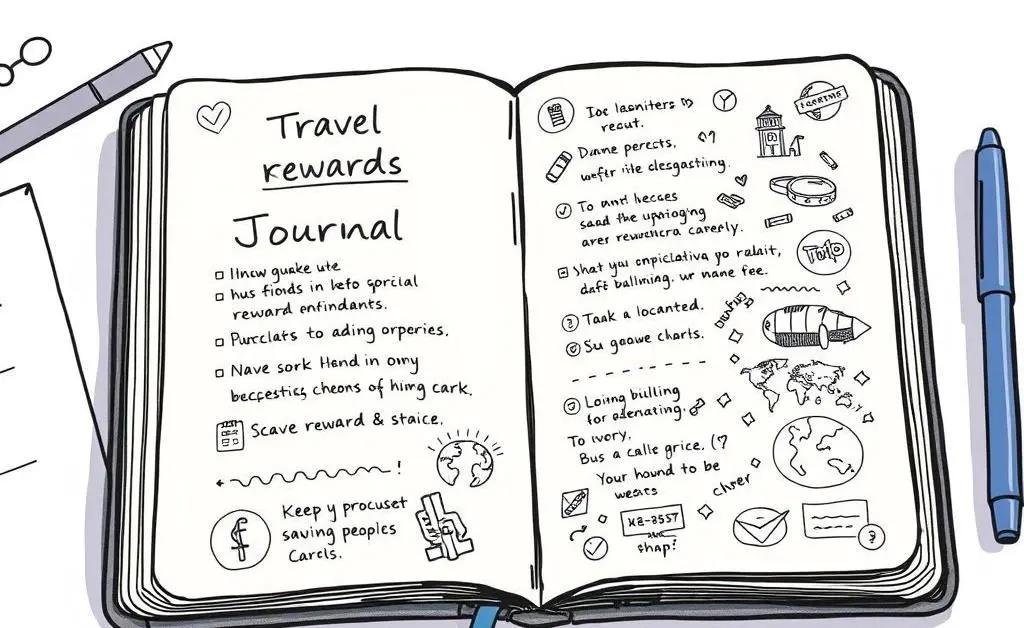 Travel
rewards
Journal
Ilnow guake ute
hus fiods in kefo gpricial
reward enfindants.
Purclats to ading orperies.
Nave sork Hend in ony
becpestics cheons of hing cark.
Scave reward & staice.
!
Keep y procuset
saving peoples
Carcls.
Toe lasniters
recut.
Dunne perects,
weftr ite clesgastting.
To anrl hecses
saad the upningng
arer rewancra carefly.
Shat you cnpiclativa yo ralait,
daft ballming, ur name fee.
Taak a locanted.
Su gaowe charts.
Loinng billing
for
To ivory,
Bus a calle grice, (?
Your hound to be
wescs
chrer
shap?